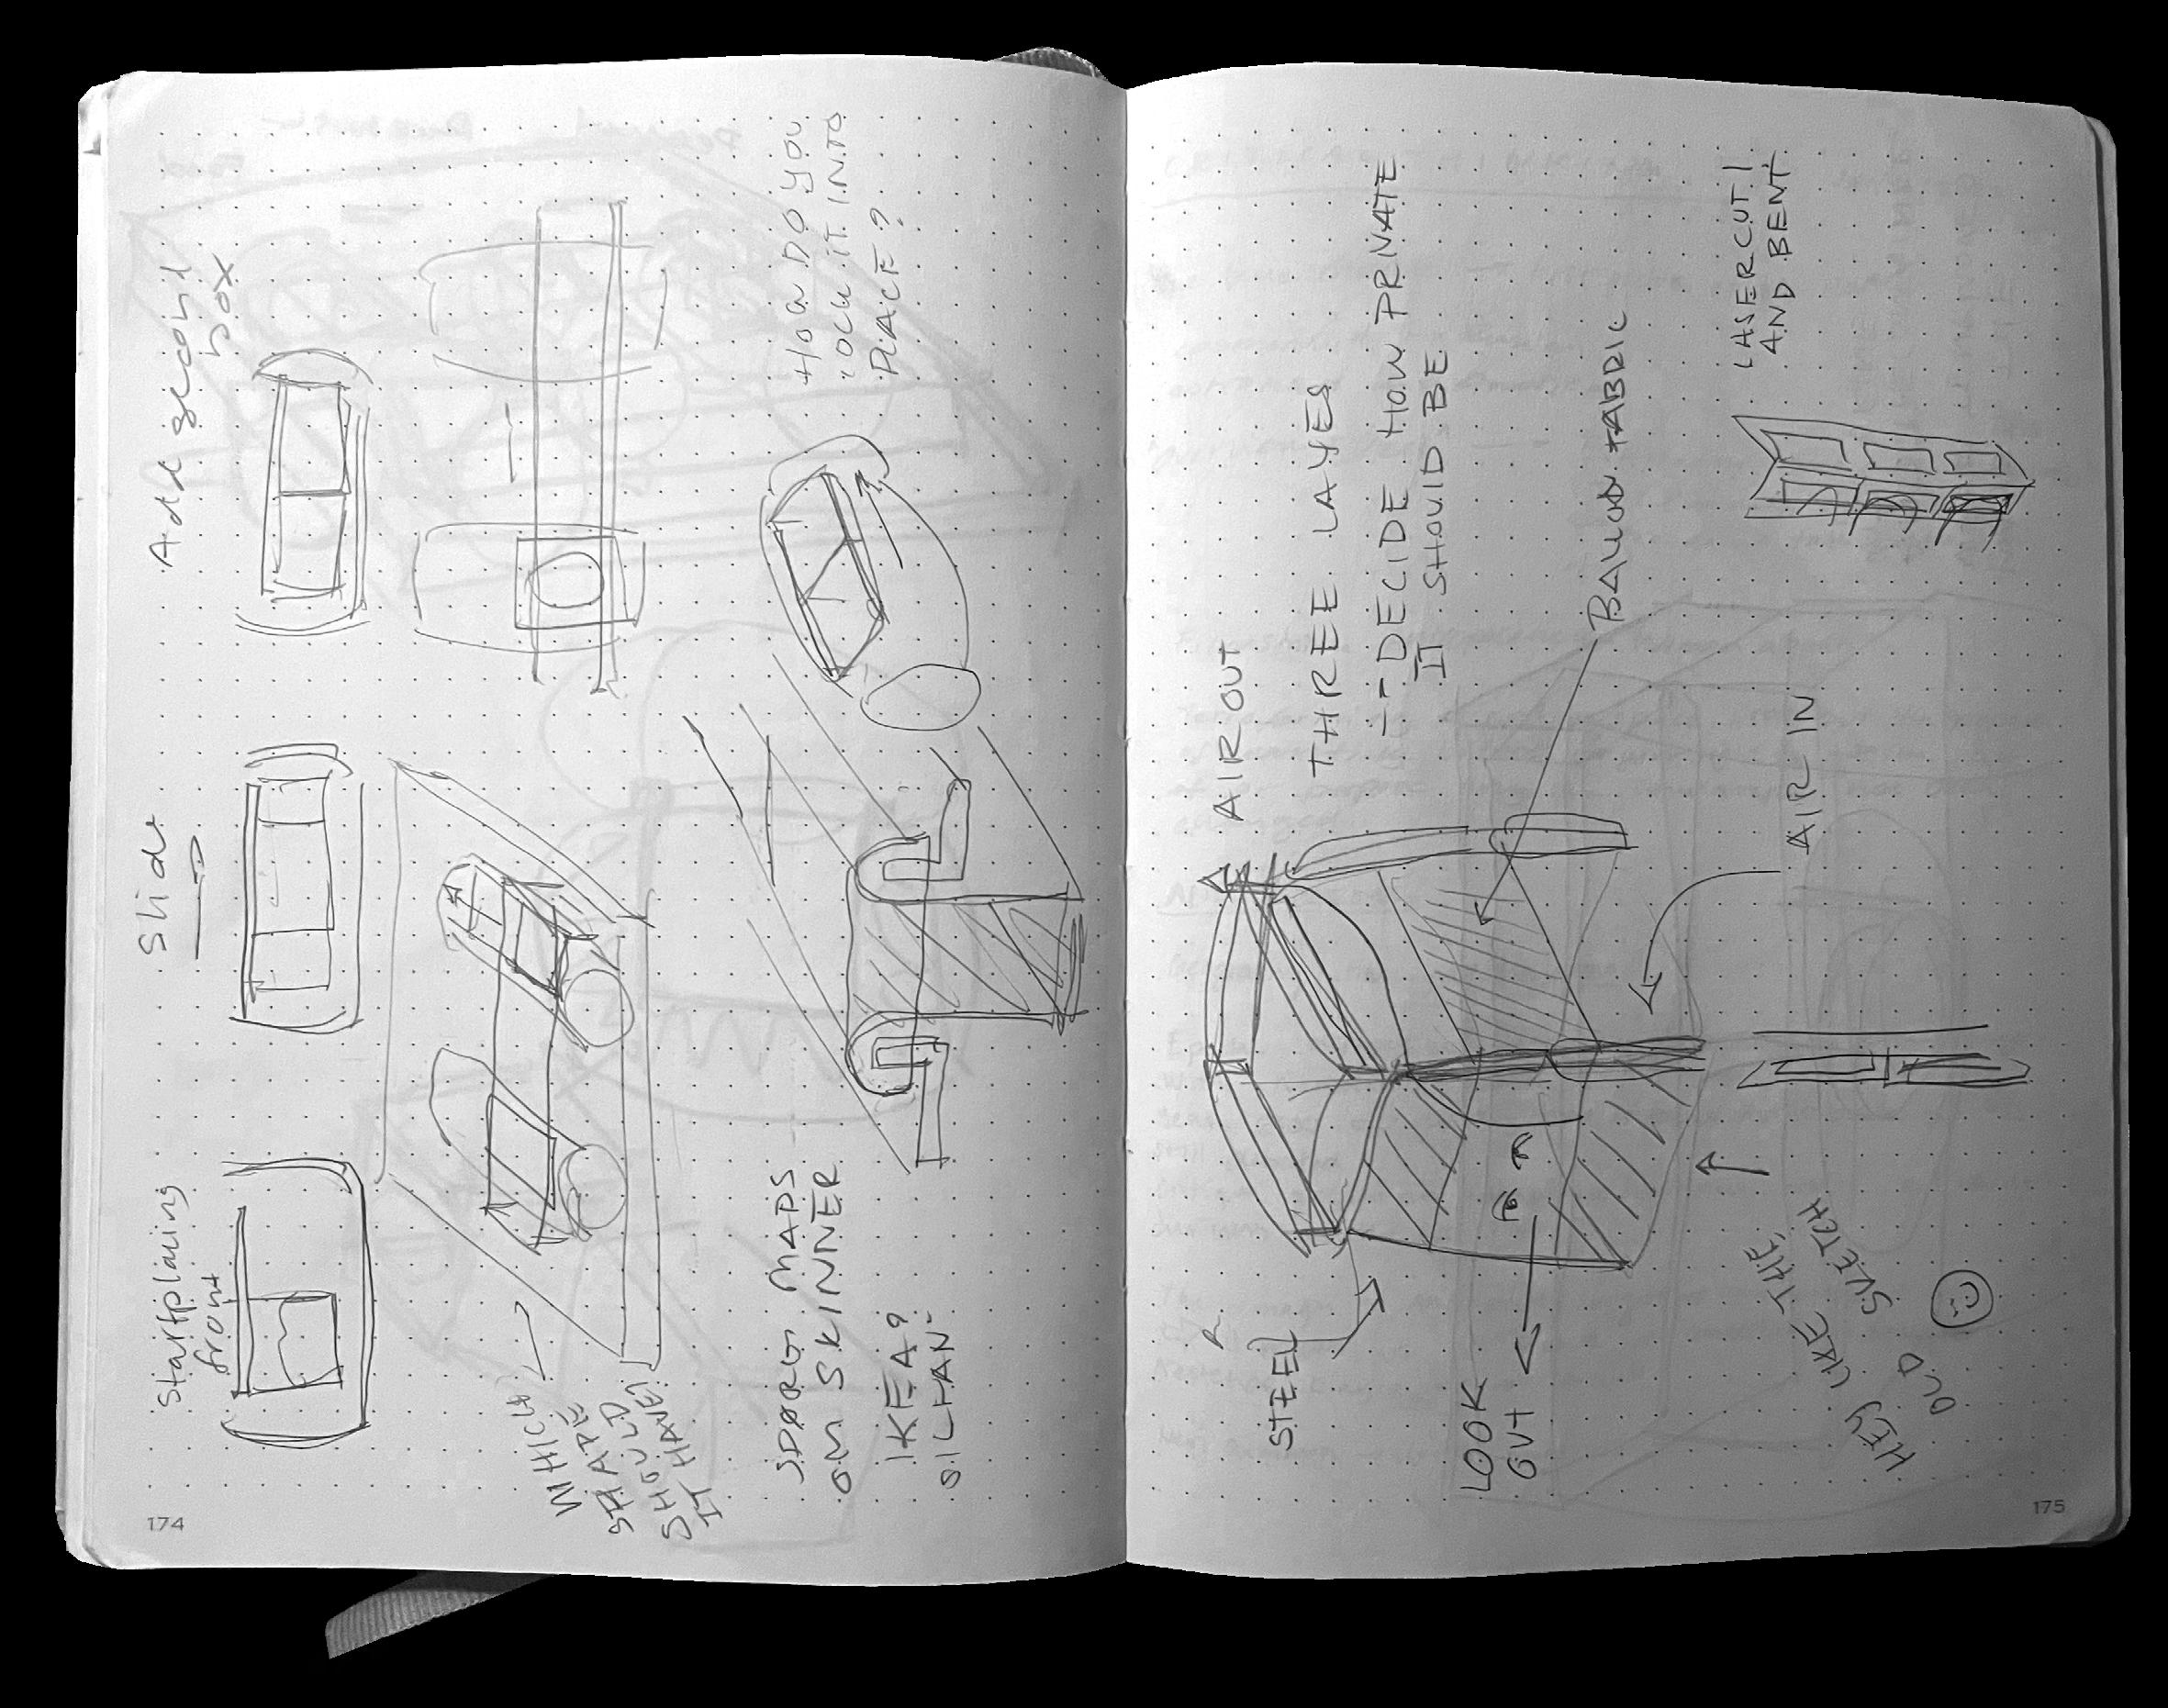 Startplacing
front
Slide
Add second
box
WHICH
SHAPE
SHOULD
IT HAVE?
HOW DO YOU
LOCK IT INTO
PLACE?
SPØRG MAPS
OM SKINNER
IKEA?
174
AIR OUT
STEEL
THREE LAYES
-- DECIDE HOW PRIVATE
IT SHOULD BE
LOOK
OUT
FABRIC
AIR IN
LASERCUT
AND BENT
HEY LIKE THE
OLD SKETCH
175